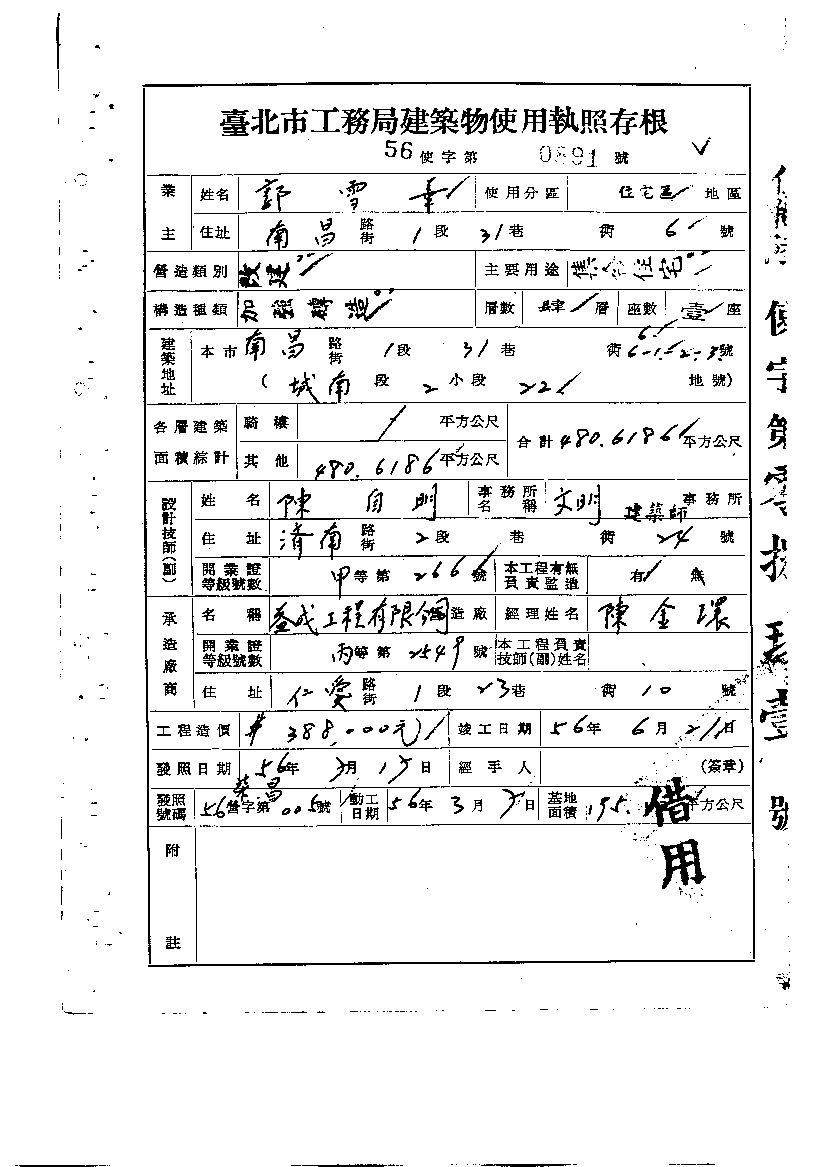 臺北市工務局建築物使用執照存根
56 使字第 0891 號
業主 姓名 郭雪 使用分區 住宅區 地區
住址 南昌 路街 1 段 31 巷 衖 6 號
營造類別 改建 主要用途 集合住宅
構造種類 加強磚造 層數 肆 層 座數 壹 座
建築地址 本市 南昌 路街 1 段 31 巷 衖 6-1.-2.-3. 號
( 城南 段 2 小段 22 地號)
各層建築面積綜計 騎樓 / 平方公尺 合計 480.6186 平方公尺
其他 480.6186 平方公尺
設計技師(副) 姓名 陳自明 事務所名稱 文明 建築師 事務所
住址 濟南 路街 2 段 巷 衖 24 號
開業證等級號數 甲 等第 2666 號 本工程有無負責監造 有 無
承造廠商 名稱 益成工程有限公司 營造廠 經理姓名 陳金環
開業證等級號數 丙 等第 2549 號 本工程負責技師(副)姓名
住址 仁愛 路街 1 段 23 巷 衖 10 號
工程造價 # 388,000元 竣工日期 56 年 6 月 21 日
發照日期 56 年 月 1 日 經手人 (簽章)
發照號碼 56 營字第 005 號 動工日期 56 年 3 月 日 基地面積 195. 平方公尺
附註
借用
使字第零捌玖壹號